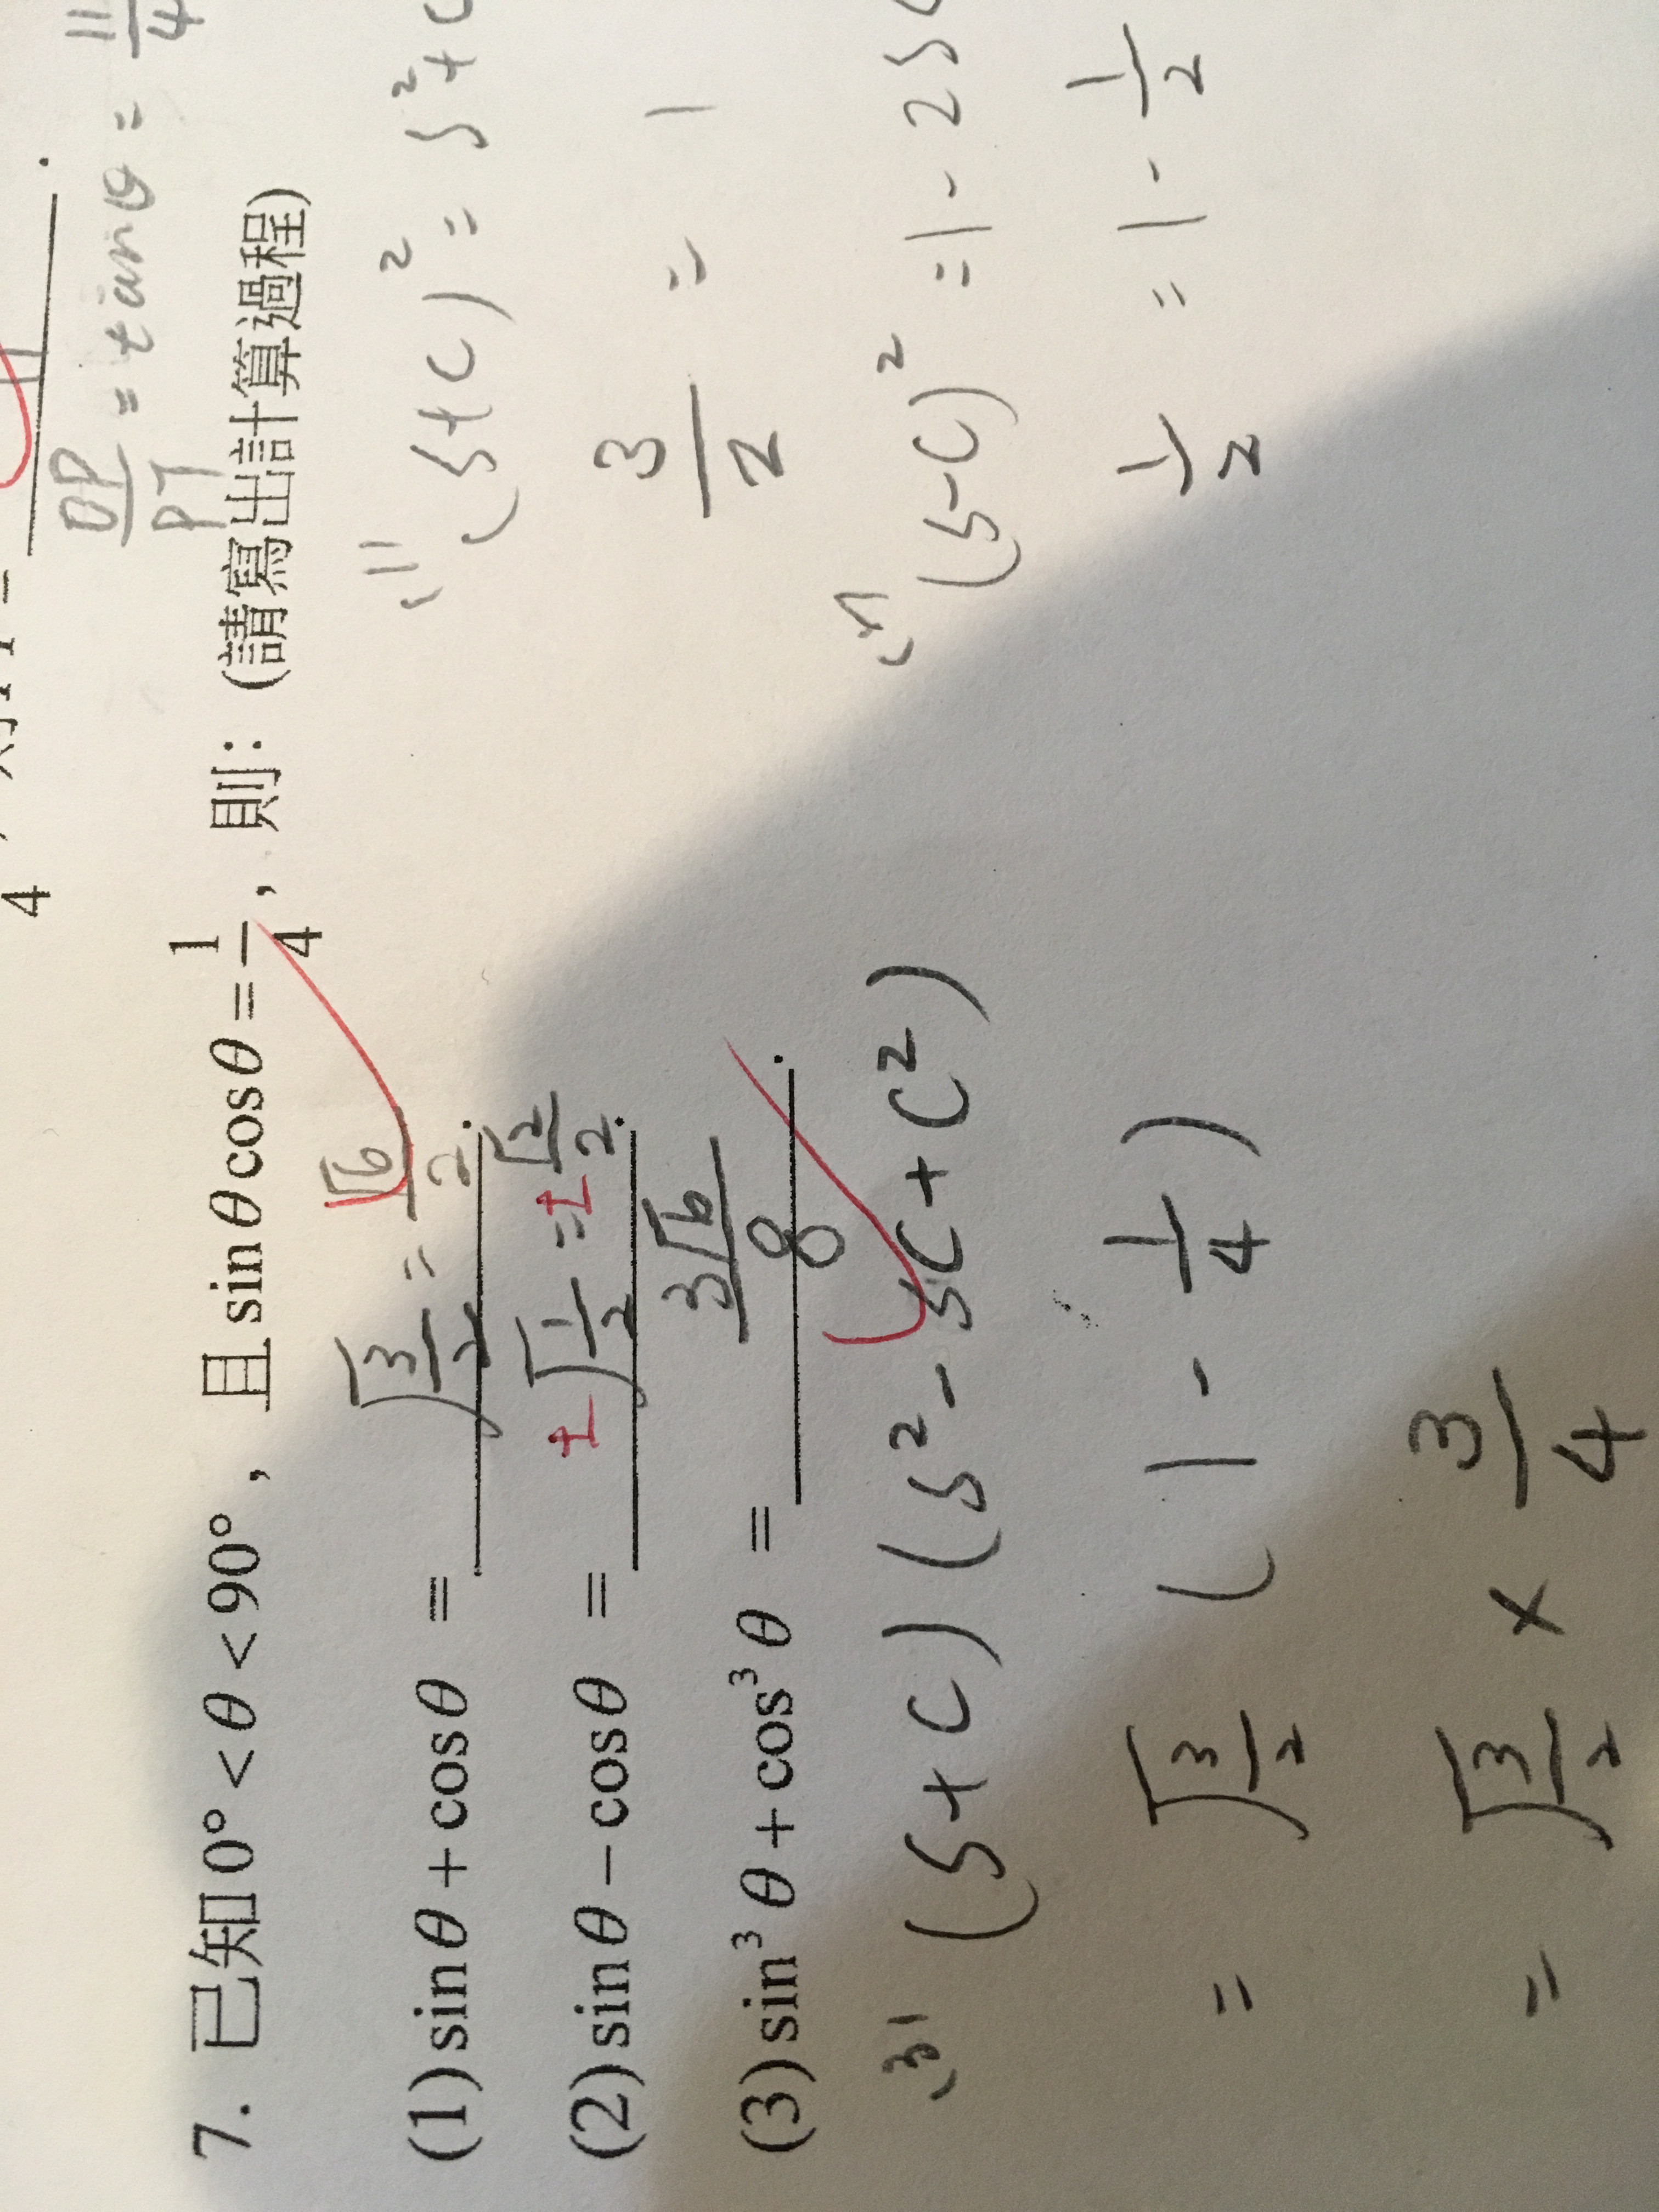 4
OP/PT = tanθ = 11/4
7. 已知0°<θ<90°，且sinθcosθ=1/4，則：(請寫出計算過程)
(1)sinθ+cosθ = √(3/2) = √6/2.
(2)sinθ−cosθ = ±√(1/2) = ±√2/2.
(3)sin³θ+cos³θ = 3√6/8.
(1) (S+C)² = S²+C
3/2 = 1
(S-C)² = 1-2S
1/2 = 1-1/2
(3) (S+C)(S²-SC+C²)
= √(3/2) (1-1/4)
= √(3/2) × 3/4